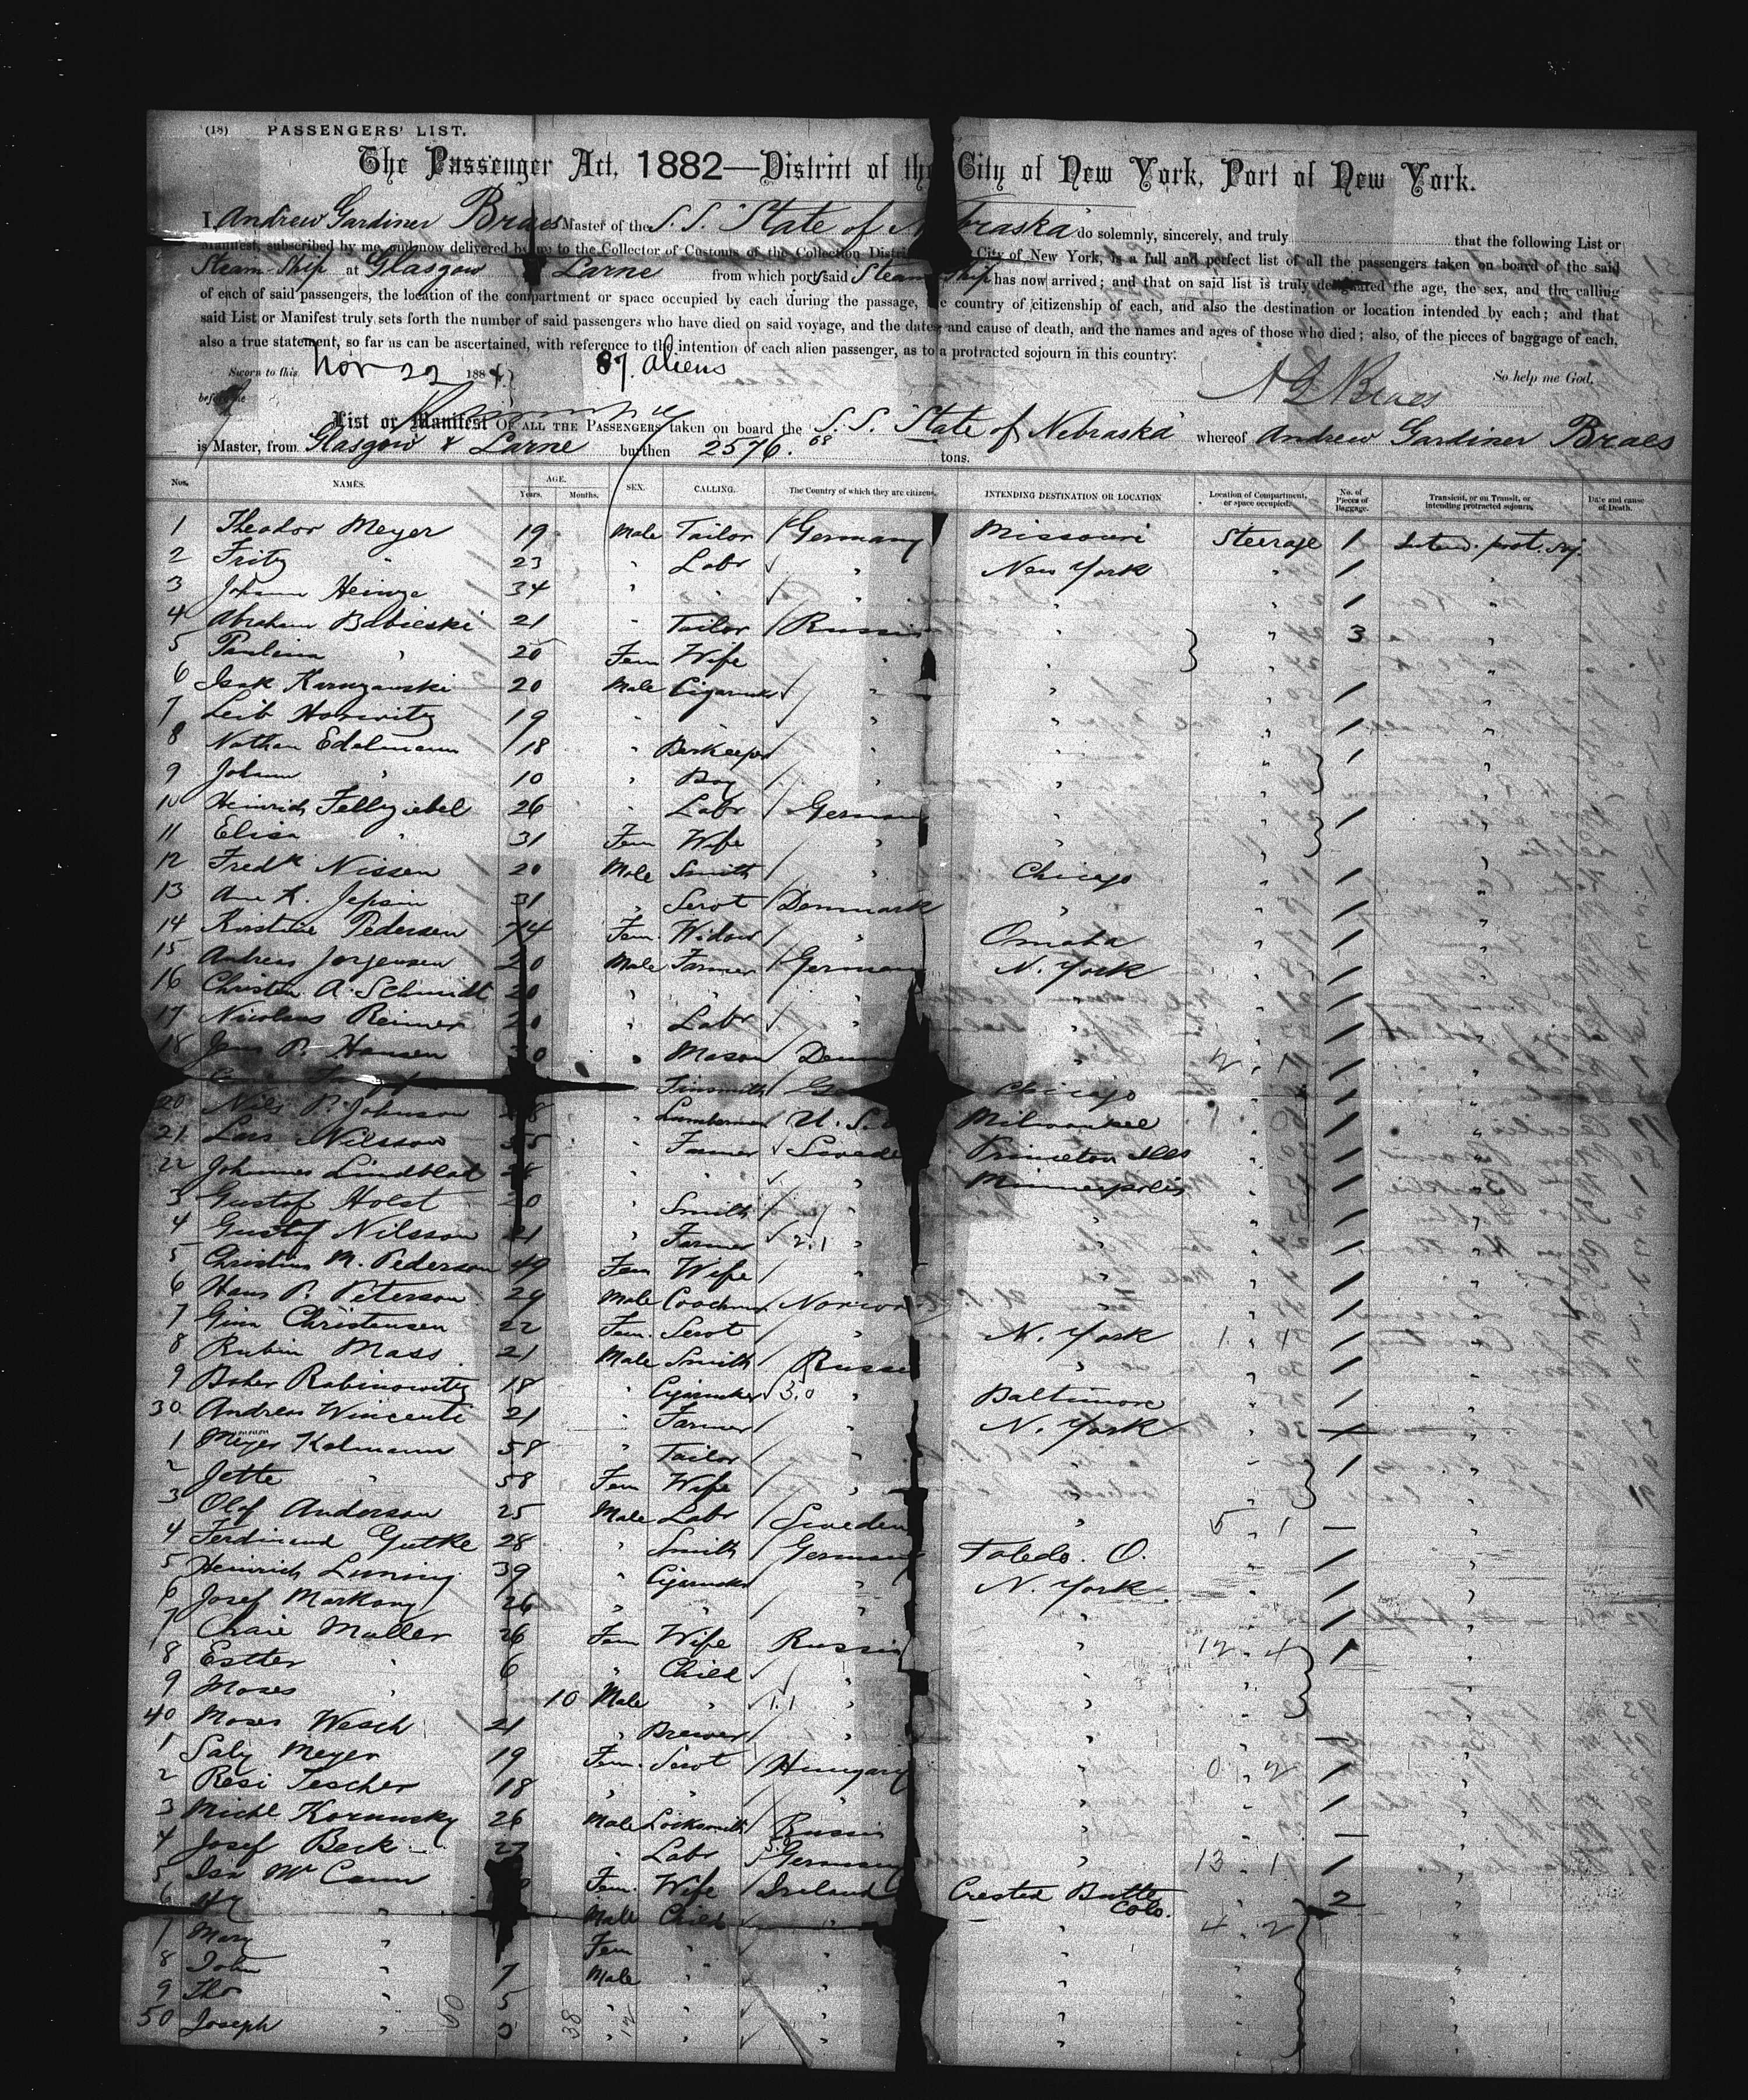 (18) PASSENGERS' LIST.
The Passenger Act, 1882—District of the City of New York, Port of New York.
I, Andrew Gardiner Braes Master of the S.S. "State of Nebraska" do solemnly, sincerely, and truly that the following List or
Manifest, subscribed by me, and now delivered by me to the Collector of Customs of the Collection District City of New York, is a full and perfect list of all the passengers taken on board of the said
Steam-Ship at Glasgow Larne from which port said Steam Ship has now arrived; and that on said list is truly designated the age, the sex, and the calling
of each of said passengers, the location of the compartment or space occupied by each during the passage, the country of citizenship of each, and also the destination or location intended by each; and that
said List or Manifest truly sets forth the number of said passengers who have died on said voyage, and the dates and cause of death, and the names and ages of those who died; also, of the pieces of baggage of each,
also a true statement, so far as can be ascertained, with reference to the intention of each alien passenger, as to a protracted sojourn in this country:
Sworn to this Nov 22 188 87. aliens So help me God.
before me A G Braes
List or Manifest OF ALL THE PASSENGERS taken on board the S.S. "State of Nebraska" whereof Andrew Gardiner Braes
is Master, from Glasgow & Larne burthen 2576.68 tons.
Nos. NAMES. AGE. Years. Months. SEX. CALLING. The Country of which they are citizens. INTENDING DESTINATION OR LOCATION Location of Compartment, or space occupied. No. of Pieces of Baggage. Transient, or on Transit, or intending protracted sojourn. Date and cause of Death.
1 Theodor Meyer 19 Male Tailor Germany Missouri Steerage 1 Intend. prot. soj.
2 Fritz " 23 " Labr " New York " 1 "
3 Johann Heinze 34 " " " " " 1 "
4 Abraham Babieski 21 " Tailor Russia " " 3 "
5 Paulina " 20 Fem Wife " "
6 Isak 20 Male Cigarmkr " " " 1 "
7 Leib Horwitz 19 " " " " " 1 "
8 Nathan Edelmann 18 " " " " 1 "
9 Johann " 10 " Boy " "
10 Heinrich Fellgiebel 26 " Labr German " " 1 "
11 Elisa " 31 Fem Wife " "
12 Fredk Nissen 20 Male Smith " Chicago " 1 "
13 Ane K. Jepsin 31 " Servt Denmark " " 1 "
14 Kirstine Pedersen 74 Fem. Widow " Omaha " 1 "
15 Andreas Jorgensen 20 Male Farmer German N. York " 1 "
16 Christen A. Schmidt 20 " " " " " 1 "
17 Nicolaus Reimer 20 " Labr " " " 1 "
18 Jens P. Hansen " Mason Denm " 1 "
Tinsmith Ge Chicago " 1 "
20 Nils P. Johnson " Lumberman U. S. Milwaukee " 1 "
21 Lars Nilsson " Farmer Swede Princeton Ills " 1 "
22 Johannes Lindblad " " " Minneapolis " 1 "
3 Gustof Holst 20 " Smith " " " 1 "
4 Gustof Nilsson 21 " Farmer 2.1 " " " 1 "
5 Christine M. Pederson 49 Fem Wife " " " 1 "
6 Hans P. Peterson 29 Male Coachman Norwa " " 1 "
7 Gina Christensen 22 Fem. Servt " N. York 1 . 1 "
8 Rubin Mass 21 Male Smith Russi " " 1 "
9 Rabinowitz 18 " Cigarmker 3.0 " Baltimore " 1 "
30 Andreas Wincenti 21 " Farmer " N. York " "
1 Meyer Kalmann 58 " Tailor " " " 1 "
2 Jette " 58 Fem Wife " "
3 Olof Anderson 25 Male Labr Sweden " 5 . 1 — "
4 Ferdinand Gutke 28 " Smith Germany Toledo. O. " 1 "
5 Heinrich Luning 39 " Cigarmkr " N. York " 1 "
6 Josef Markony 26 " " " " 1 "
7 Chaie Muller 26 Fem Wife Russia " 12 . 4 1 "
8 Esther " 6 " Child " "
9 Moses " 10 Male " 1.1 " "
40 Moses Wesch 21 " Brewer " " " — "
1 Saly Meyer 19 Fem. Servt Hungary " 0 . 2 1 "
2 Resi Tescher 18 " " " " " 1 "
3 Michl Kornusky 26 Male Locksmith Russia " " — "
4 Josef Beck 27 " Labr Germany " 13 . 1 1 "
5 Isa Mc Cann Fem. Wife Ireland Crested Butte Colo. " 2 "
6 " Male Child " " 4 . 2
7 Mary " Fem " " "
8 John " 7 Male " " "
9 Tho " 5 " " " "
50 Joseph " 50 38 " 12 " "